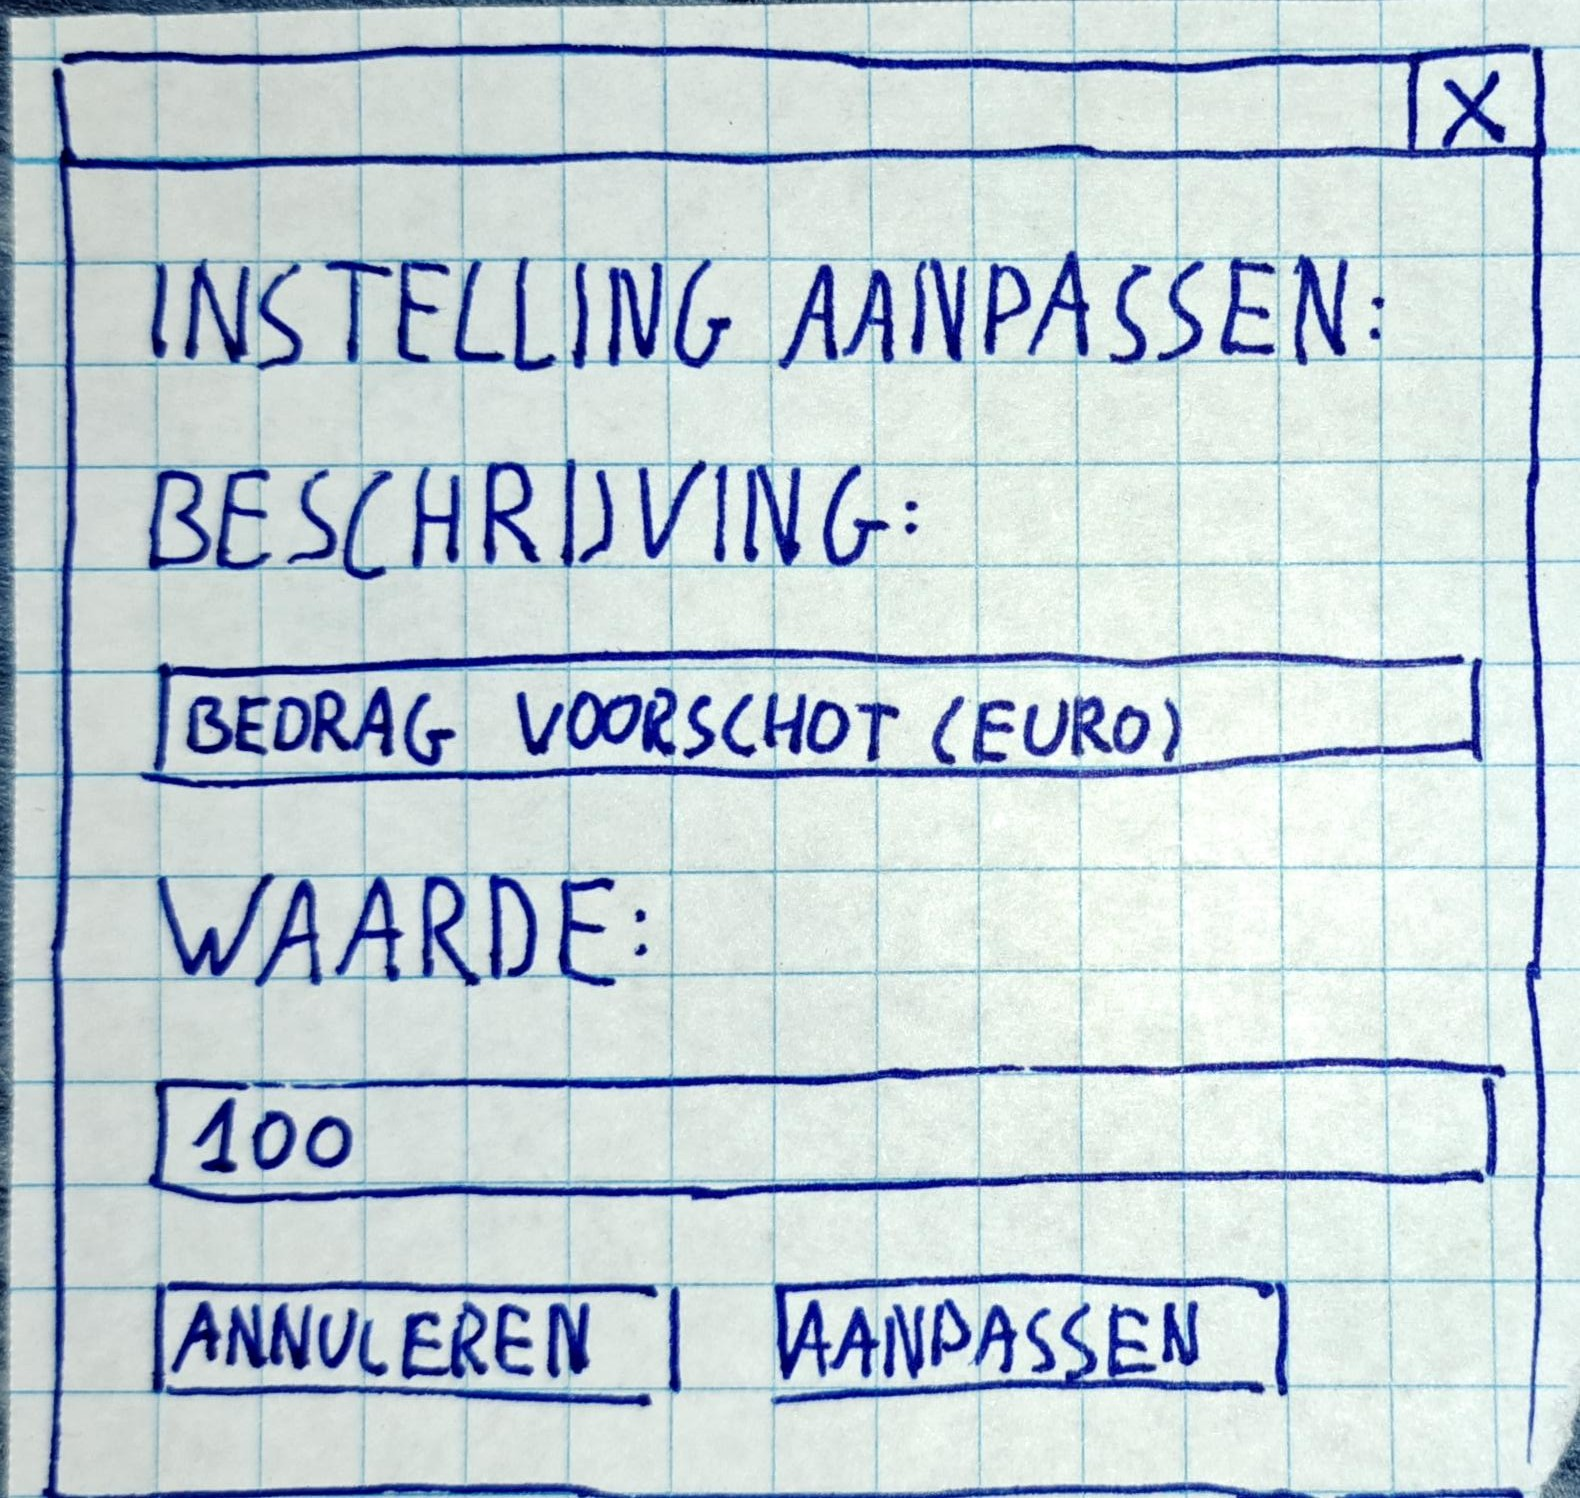 X
INSTELLING AANPASSEN:
BESCHRIJVING:
BEDRAG VOORSCHOT (EURO)
WAARDE:
100
ANNULEREN AANPASSEN